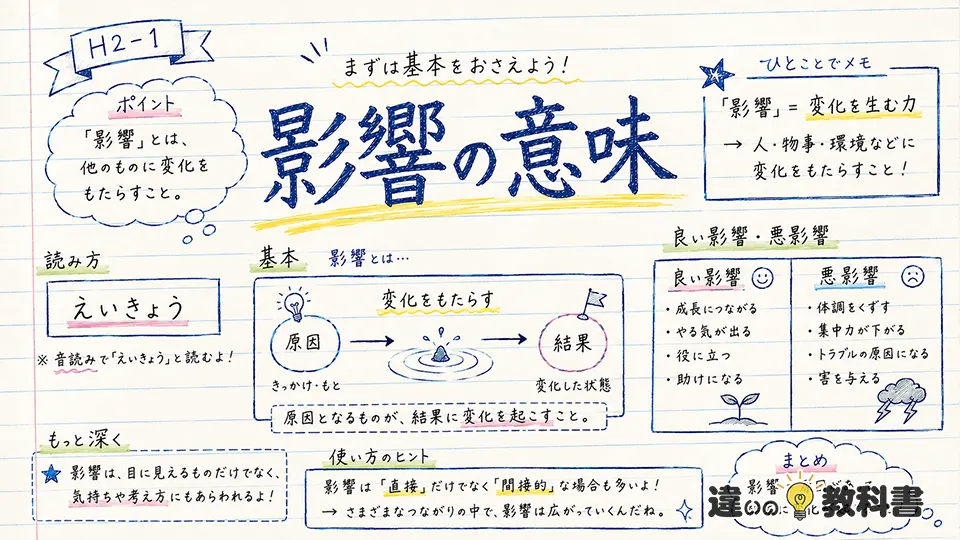 H2-1
まずは基本をおさえよう!
影響の意味
ポイント
「影響」とは、
他のものに変化を
もたらすこと。
ひとことでメモ
「影響」= 変化を生む力
→ 人・物事・環境などに
変化をもたらすこと!
読み方
えいきょう
※ 音読みで「えいきょう」と読むよ!
基本 影響とは…
変化をもたらす
原因
結果
きっかけ・もと
変化した状態
原因となるものが、結果に変化を起こすこと。
良い影響・悪影響
良い影響
・成長につながる
・やる気が出る
・役に立つ
・助けになる
悪影響
・体調をくずす
・集中力が下がる
・トラブルの原因になる
・害を与える
もっと深く
影響は、目に見えるものだけでなく、
気持ちや考え方にもあらわれるよ!
使い方のヒント
影響は「直接」だけでなく「間接的」な場合も多いよ!
→ さまざまなつながりの中で、影響は広がっていくんだね。
まとめ
影響
違いの教科書